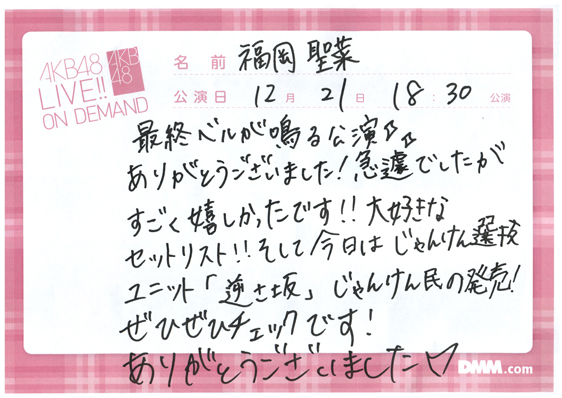 AKB48
LIVE!!
ON DEMAND
AKB
48
名前 福岡 聖菜
公演日 12月 21日 18:30 公演
最終ベルが鳴る公演
ありがとうございました!急遽でしたが
すごく嬉しかったです!!大好きな
セットリスト!!そして今日はじゃんけん選抜
ユニット「逆さ坂」じゃんけん民の発売!
ぜひぜひチェックです!
ありがとうございました♡
DMM.com